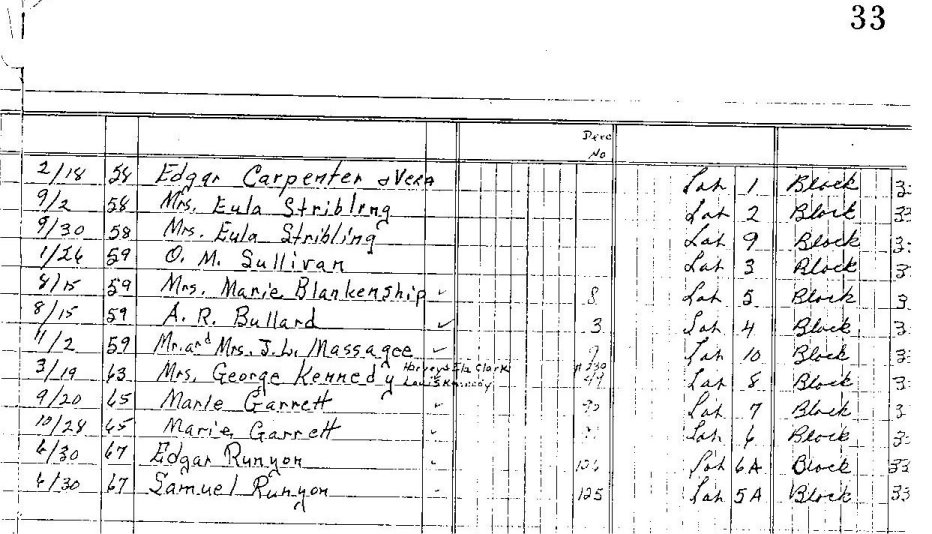 33
Deed
No
2/18 58 Edgar Carpenter & Vera Lot 1 Block 3
9/2 58 Mrs. Eula Stribling Lot 2 Block 33
9/30 58 Mrs. Eula Stribling Lot 9 Block 3
1/26 59 O. M. Sullivan Lot 3 Block 3
8/15 59 Mrs. Marie Blankenship ✓ 8 Lot 5 Block 3
8/15 59 A. R. Bullard ✓ 3 Lot 4 Block 3
11/2 59 Mr. and Mrs. J. L. Massagee ✓ 9 Lot 10 Block 3
3/19 63 Mrs. George Kennedy Clark Kennedy Lot 8 Block 3
9/20 65 Marie Garrett ✓ Lot 7 Block 3
10/28 65 Marie Garrett ✓ Lot 6 Block 3
6/30 67 Edgar Runyon ✓ 126 Lot 6A Block 33
6/30 67 Samuel Runyon ✓ 125 Lot 5A Block 33